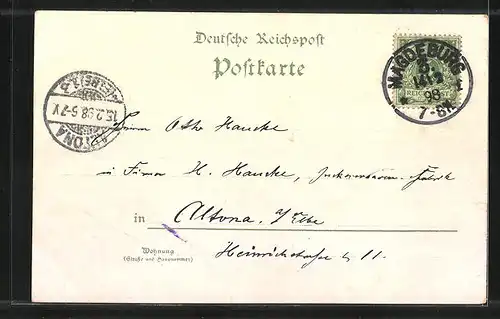 Deutsche Reichspost
Postkarte
MAGDEBURG
98
7-8
REICHSPOST
ALTONA
15.2.98.5-7V
Herrn Otto Haucke
in Firma H. Haucke, Fabrik
in Altona. a/Elbe
Wohnung
(Straße und Hausnummer)
Heinrichstrasse 11.